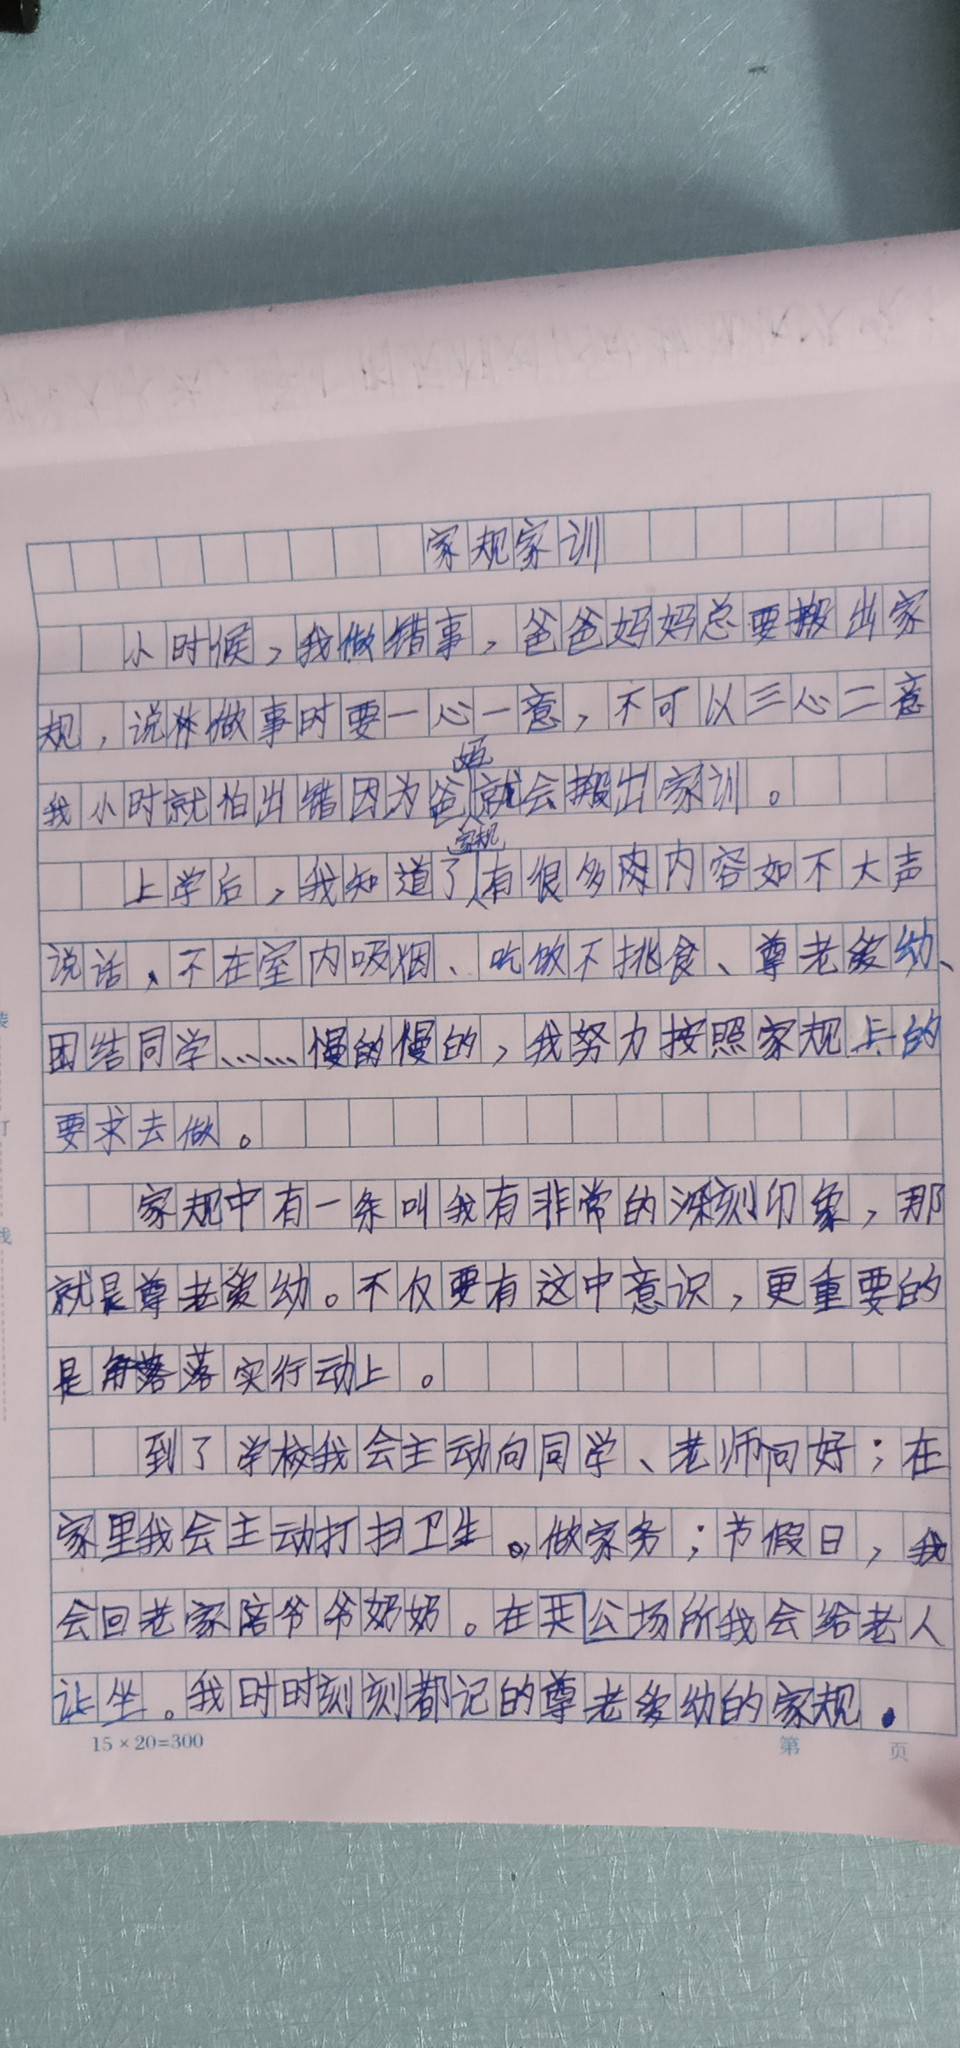 家规家训
小时候，我做错事，爸爸妈妈总要搬出家
规，说做事时要一心一意，不可以三心二意
我小时就怕出错因为爸妈就会搬出家训。
上学后，我知道了家规有很多内容如不大声
说话、不在室内吸烟、吃饭不挑食、尊老爱幼、
团结同学……慢的慢的，我努力按照家规上的
要求去做。
家规中有一条叫我有非常的深刻印象，那
就是尊老爱幼。不仅要有这中意识，更重要的
是落实行动上。
到了学校我会主动向同学、老师问好；在
家里我会主动打扫卫生，做家务；节假日，我
会回老家陪爷爷奶奶。在公场所我会给老人
让坐。我时时刻刻都记的尊老爱幼的家规。
15×20=300
第 页